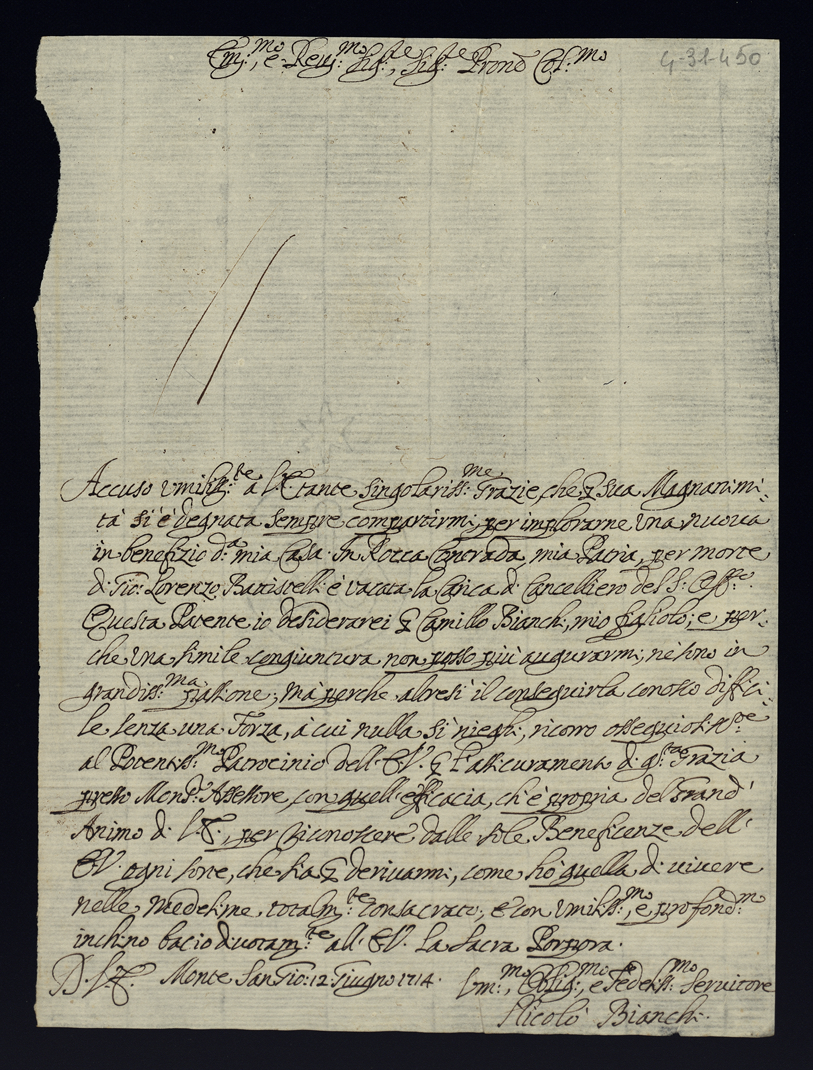 Em:mo, e Reu:mo Sig:re, Sig:re Prone Col:mo
4-31-450
Accuso vmiliss:te a l'E. tante singolariss:me Grazie, che p sua Magnanimi-
tà si è degnata sempre compartirmi, per implorarne una nuova
in benefizio d:a mia Casa. In Rocca Contrada, mia Patria, per morte
di Gio: Lorenzo Battistelli è vacata la Carica di Cancelliero del S: Offo.
Questa Patente io desiderarei p Camillo Bianchi, mio figliolo; e per-
che una simile congiuntura non posso più augurarmi, ne sono in
grandiss:ma passione; mà perche altresì il conseguirla conosco diffici-
le senza una Forza, à cui nulla si nieghi, ricorro ossequiosam:te
al Potentiss:mo Patrocinio dell'E.V. p l'assicuramento di q:sta Grazia
presso Mons:r Assessore, con quell'efficacia, ch'è propria del Grand'
Animo di l'E., per riconoscere dalle sole Beneficenze dell'
E.V. ogni sorte, che sia p derivarmi, come hò quella di vivere
nelle medesime totalm:te consacrato, e con vmiliss:mo, e profond:mo
inchino bacio diuotam:te all'E.V. la Sacra Porpora.
D. V. E. Monte San Gio: 12 Giugno 1714.
Vm:mo, Oblig:mo, e Fedeliss:mo Seruitore
Nicolò Bianchi